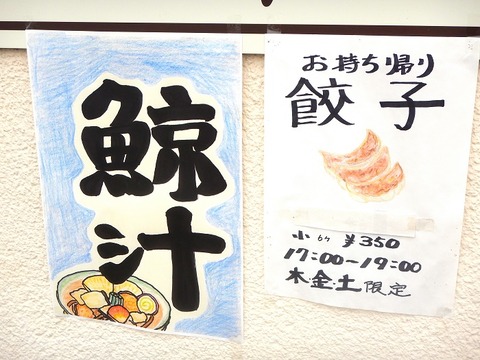 鯨汁
お持ち帰り
餃子
小 6ケ ¥350
17:00-19:00
木・金・土限定